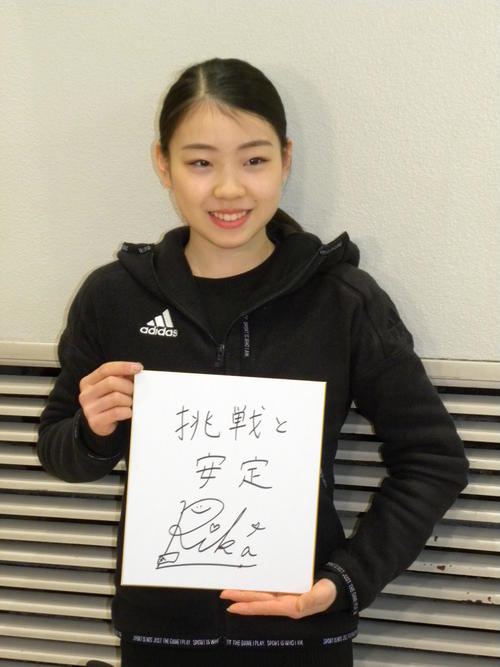 adidas
挑戦と
安定
Rika
SPORT IS NOT JUST THE GAME I PLAY. SPORT IS WHO I AM.